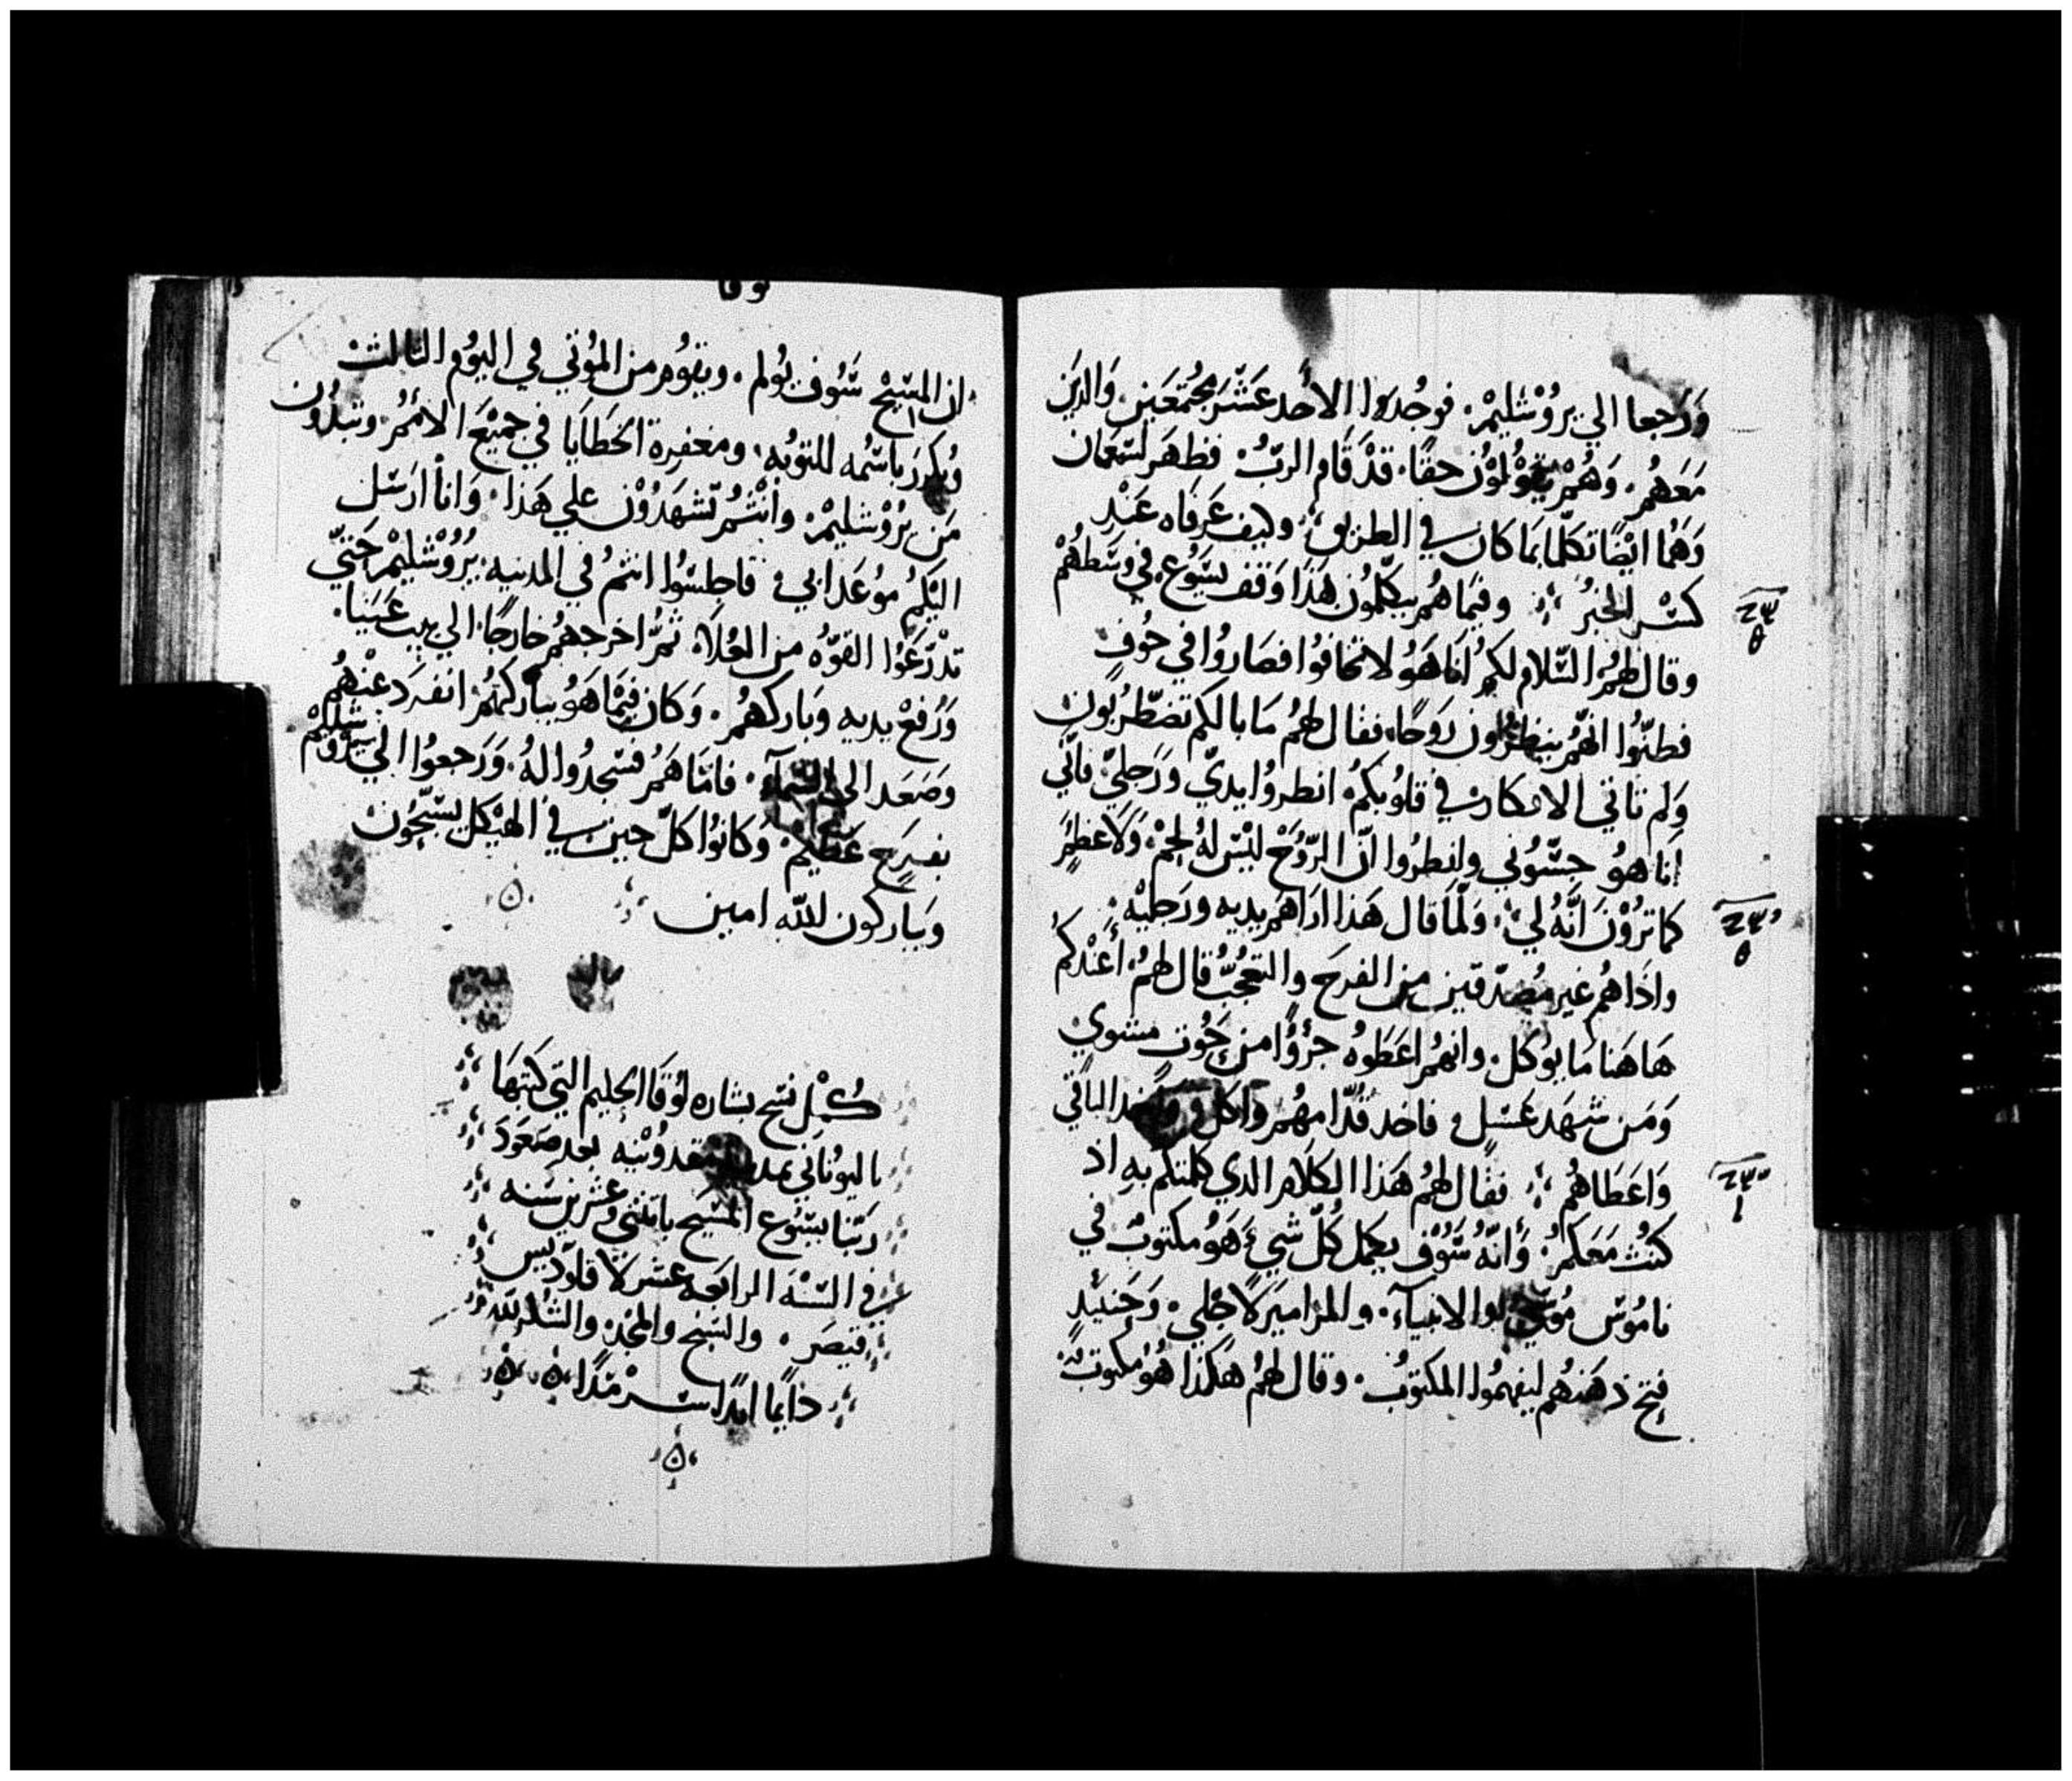 وَرَجعا الي يروُشليمْ. فوجُدوا الأحد عَشَر مجُتمعَين. وَالدَين
مَعَهُم. وَهُمْ يقوُلوُن حقًا. قدْ قَام الربُ. فظهَر لسَمعَان
وَهَما ايضًا تكلما بمَا كان في الطريق، وكيف عَرفاه عَند
كسْر الخبزُ ؛ وفيمَا هُم يتكلموُن هَذا وَقف يسَوُع في وسَطهُمْ
وقال لهمُ السَّلام لكم انَا هَوُ لا تخافوُا فصَاروُا في خوُفٍ
فظنّوُا انهُم ينظرُون رَوحًا. فقال لهمُ مَا بالكم تضطرُبون
وَلم تاتي الافكار في قلوُبكمُ. انظروُا يديّ وَرَجليّ فاني
انَا هوُ جسّوُني وانظرُوا انّ الرّوُحْ ليْسَ لهُ لحمْ وَلا عَظمٌ
كما ترَوُنَ انّهُ لي؛ وَلمّا قال هَذا ارَاهَم يديه ورَجليْه.
واذاهُم غير مُصدّقين من الفرحَ والتعجُبُ قال لهمُ. أعَندكم
هَاهَنا مَا يوُكل. وانهمُ اعَطَوهُ جزؤًا من حَوُت مشوي
وَمَن شهَد عَسَل فاخد قدّامهُم واكل واخد الباقي
وَاعَطاهُم ؛ فقال لهمُ هَذا الكلام الدي كلمتكم به اذ
كنتُ مَعَكمُ. وَانّهُ سَوُف يكمل كُلّ شيء هَوُ مكتوبٌ في
نامُوس مُوسي والانبيآء. والمزامير لاجلي. وَحَينئذٍ
فتح ذهَنهُم ليفهمُوا المكتوبُ. وقال لهمُ هَكذا هُوَ مكتوبٌ
لوقا
ان المسَيحْ سَوُف يوُلم. ويقوُم من الموُتي في اليوُم التالتْ
وُيكرز باسْمه للتوُبه، ومغفِرة الخَطَايَا في جميْعَ الامُمُ. وتبدُون
مَن يرُوْشليمْ. وانتُمْ تشهَدوُن علي هَذا. وَانا ارَسَل
اليْكمُ موُعَد ابي. فاجلسُوا انتمُ في المدينه؛ يرُوُشليمْ حَتيّ
تدْرَعَوُا القوّهُ من العُلاَ ثمَّ اخرجهُم خارجًا الي بيت عَنيا.
وَرُفعْ يديه وَباركهُم. وَكان فيْمَا هَوُ يبَاركهُم انفرَد عَنْهُم
وَصَعَد الي السَّمآء. فامّا هَم فسْجدُوا لهُ. وَرَجعوُا الي يروُشليمْ
بفرَحٍ عَظيْم. وَكانوُا كلّ حين في الهيْكل يسَبّحُون
وَيباركون لله امين ؛
كمُل نسَخ بشاره لوُقَا الحليم التي كتبهَا
باليوُنانَي بمدينة مقدوُنيه بعد صَعَودَ
رَبّنا يسَوُع المسَيح باتنتي وعَشرين سَنه
في السَّنَة الرابعَه عَشر لاقلوُديس
قيصَر. والسَبح والمجْد والشكر لله
دَايمًا ابدًا سرْمَدًا